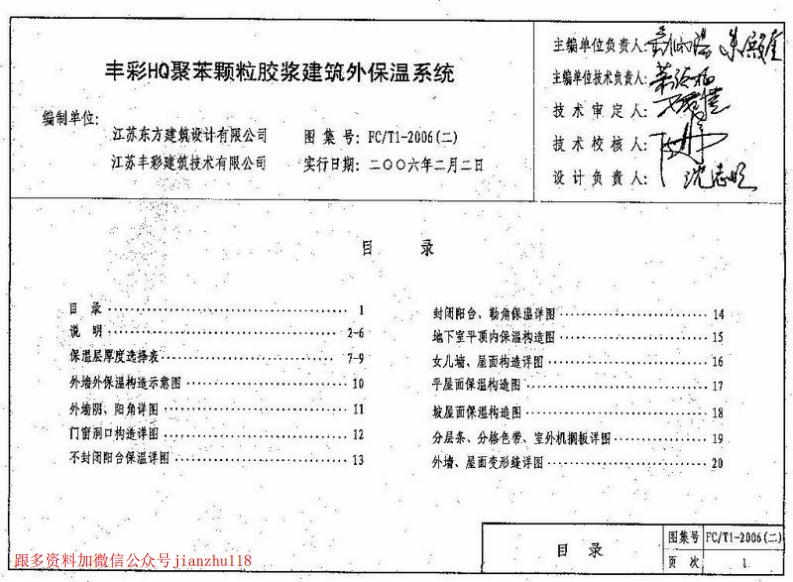 丰彩HQ聚苯颗粒胶浆建筑外保温系统
编制单位:
江苏东方建筑设计有限公司 图集号: FC/T1-2006(二)
江苏丰彩建筑技术有限公司 实行日期: 二〇〇六年二月二日
主编单位负责人:
主编单位技术负责人:
技术审定人:
技术校核人:
设计负责人: 沈志明
目 录
目 录 1
说 明 2-6
保温层厚度选择表 7-9
外墙外保温构造示意图 10
外墙阴、阳角详图 11
门窗洞口构造详图 12
不封闭阳台保温详图 13
封闭阳台、勒角保温详图 14
地下室平顶内保温构造图 15
女儿墙、屋面构造详图 16
平屋面保温构造图 17
坡屋面保温构造图 18
分层条、分格色带、室外机搁板详图 19
外墙、屋面变形缝详图 20
目 录
图集号 FC/T1-2006(二)
页 次 1
跟多资料加微信公众号jianzhu118